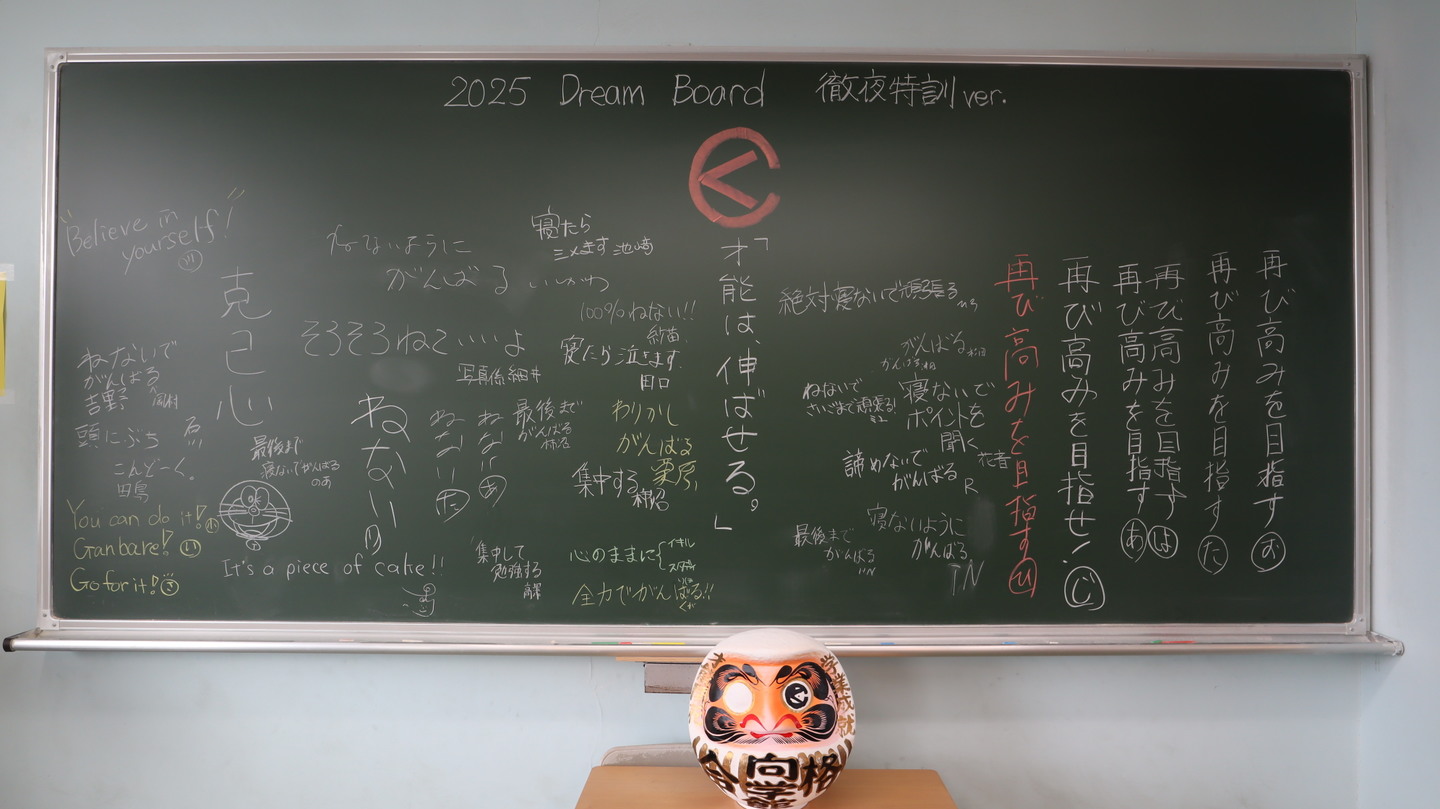 2025 Dream Board 徹夜特訓 ver.
"Believe in
yourself!"
克己心
ねないで
がんばる
吉野
岡村
頭にぶち
こんどーく。
最後まで
寝ないでがんばる
のあ
You can do it!
Ganbare!
Go for it!
It's a piece of cake!!
ねないように
がんばる
いいかわ
そろそろねていいよ
写真係細井
ねない
ねない
た
ねない
あ
寝たら
シメます 池崎
100%ねない!!
紗苗
寝たら泣きます。
田口
最後まで
がんばる
柿沼
わりかし
がんばる
栗原
集中する
集中して
勉強する
心のままに
イキル
全力でがんばる!!
「才能は、伸ばせる。」
絶対寝ないで頑張る
がんばる
ねないで
さいごまで頑張る!
寝ないで
ポイントを
聞く
花音
諦めないで
がんばる
R
寝ないように
がんばる
IN
最後まで
がんばる
再び高みを目指す ひ
再び高みを目指せ! じ
再び高みを目指す あ
再び高みを目指す は
再び高みを目指す た
再び高みを目指す お
合格
向学